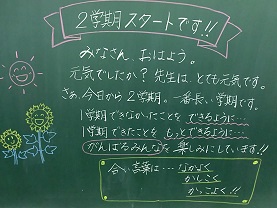 2学期スタートです!!
みなさん、おはよう。
元気でしたか？先生は、とても元気です。
さあ、今日から2学期。一番長い学期です。
1学期できなかったことをできるように…
1学期できたことをもっとできるように…
がんばるみんなを楽しみにしています!!
合い言葉は…なかよく
かしこく
かっこよく!!